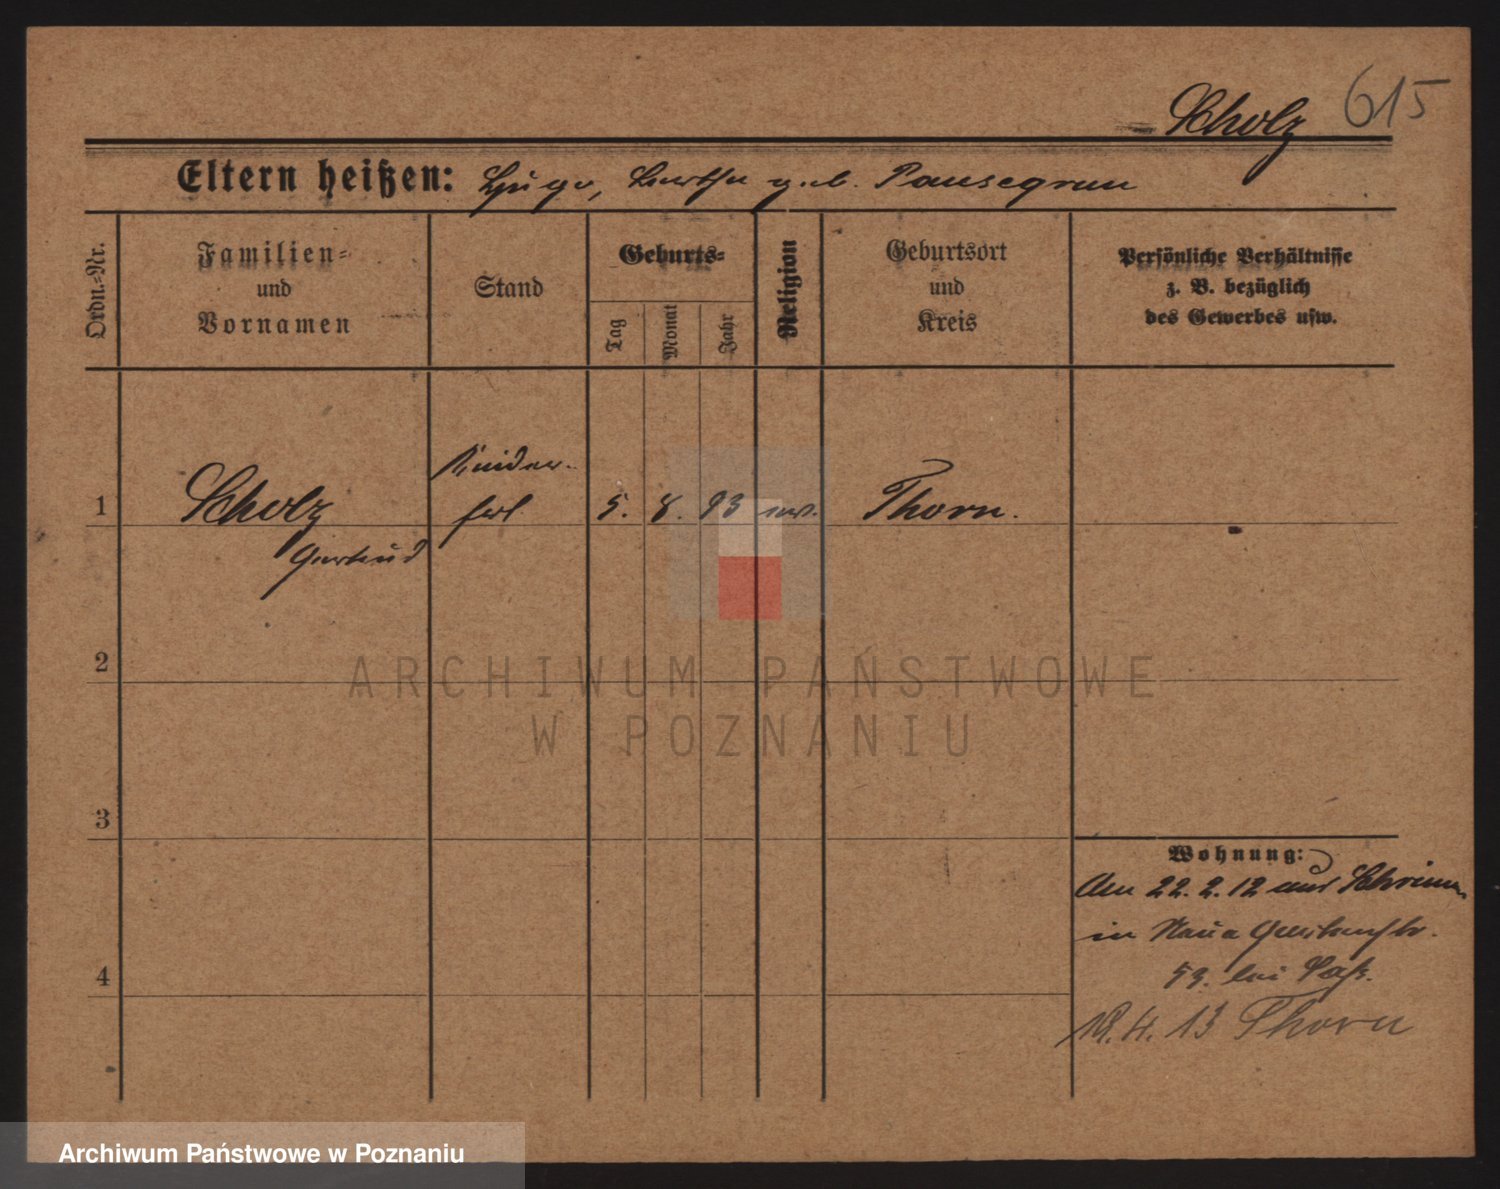 Scholz 615
Eltern heißen: Hugo, Bertha geb. Pansegrau
Ordn.-Nr.
Familien- und Vornamen
Stand
Geburts-
Tag
Monat
Jahr
Religion
Geburtsort und Kreis
Persönliche Verhältnisse
z. B. bezüglich
des Gewerbes usw.
Kinder-
1 Scholz frl 5. 8. 93 ev. Thorn.
Gertrud
2
ARCHIWUM PAŃSTWOWE
W POZNANIU
3
Wohnung:
Am 22. 2. 12 aus Schrimm
in Neue Gartenstr.
4
53. bei
19. 4. 13 Thorn
Archiwum Państwowe w Poznaniu